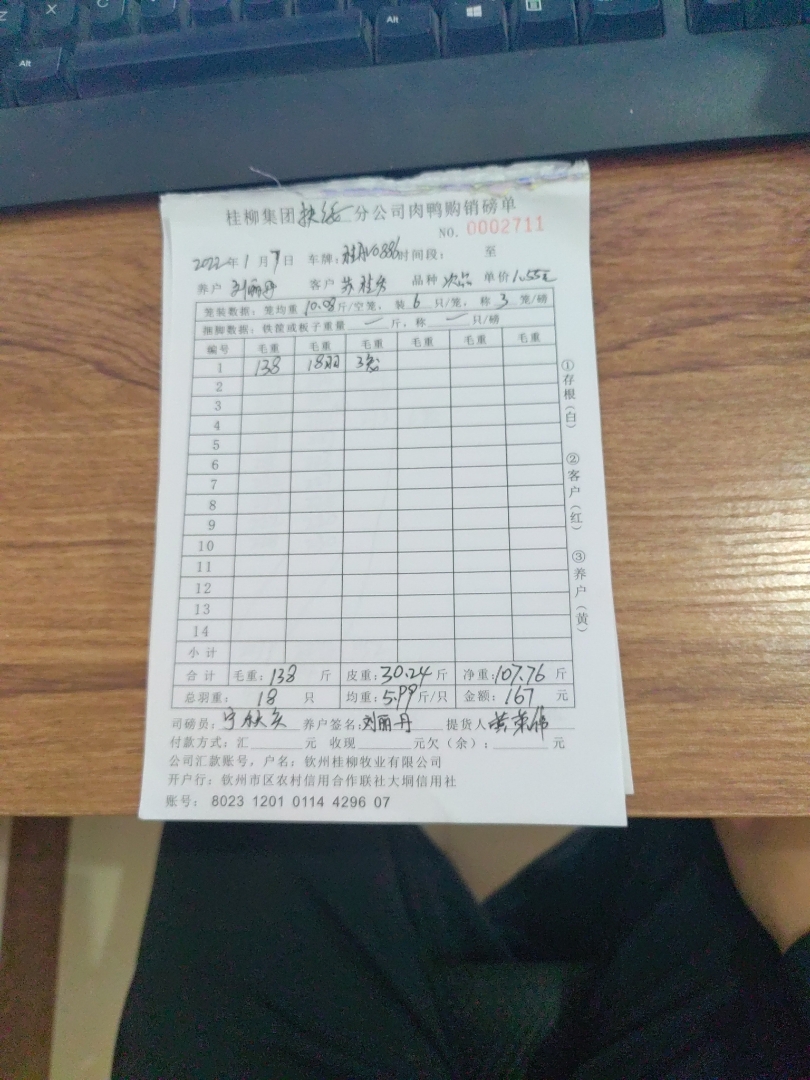 Alt
X
C
Alt
桂柳集团扶绥分公司肉鸭购销磅单
NO. 0002711
2022年1月7日 车牌: 时间段: 至
养户 刘丽丹 客户 苏桂 品种 次品 单价1.55元
笼装数据: 笼均重10.08斤/空笼, 装6只/笼, 称3笼/磅
捆脚数据: 铁筐或板子重量 — 斤, 称 — 只/磅
编号 毛重 毛重 毛重 毛重 毛重 毛重
1 138 18羽 3笼
2
3
4
5
6
7
8
9
10
11
12
13
14
小计
合计 毛重:138斤 皮重:30.24斤 净重:107.76斤
总羽重: 18 只 均重:5.99斤/只 金额: 167 元
司磅员: 养户签名:刘丽丹 提货人
付款方式: 汇 元 收现 元欠(余): 元
公司汇款账号, 户名: 钦州桂柳牧业有限公司
开户行: 钦州市区农村信用合作联社大垌信用社
账号: 8023 1201 0114 4296 07
①存根(白)
②客户(红)
③养户(黄)